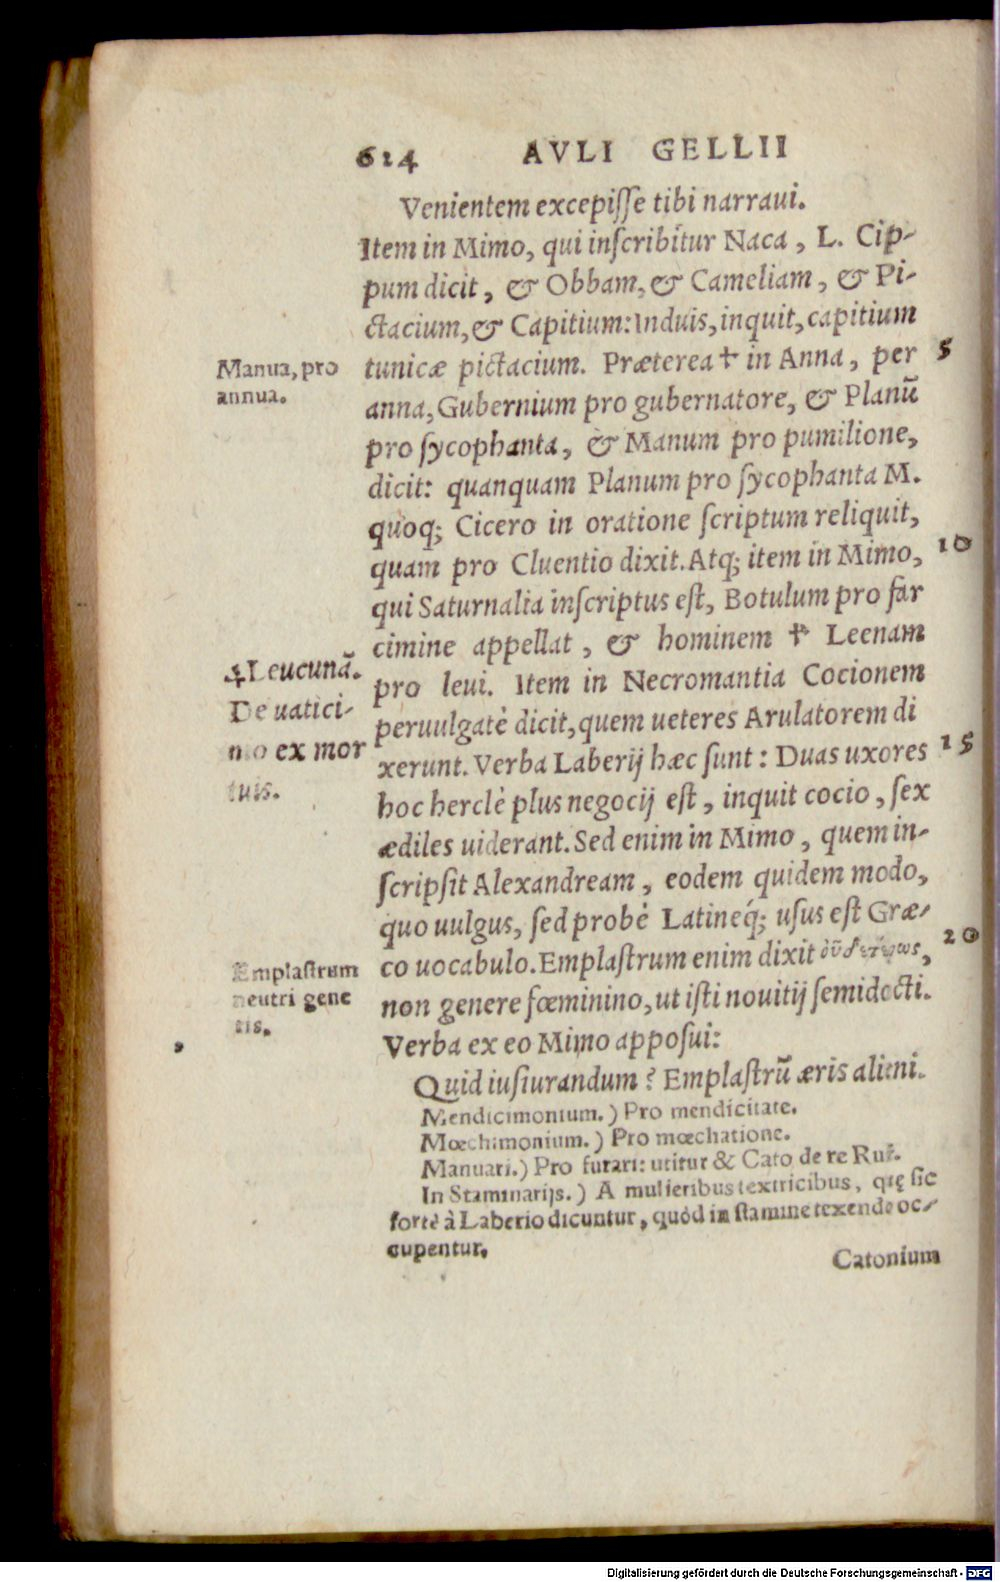 624 AVLI GELLII
Venientem excepiſſe tibi narraui.
Item in Mimo, qui inſcribitur Naca, L. Cip-
pum dicit, & Obbam, & Cameliam, & Pi-
ctacium, & Capitium: Induis, inquit, capitium
tunicæ pictacium. Præterea † in Anna, per 5
Manua, pro
annua.
anna, Gubernium pro gubernatore, & Planū
pro ſycophanta, & Manum pro pumilione,
dicit: quanquam Planum pro ſycophanta M.
quoq; Cicero in oratione ſcriptum reliquit,
quam pro Cluentio dixit. Atq; item in Mimo, 10
qui Saturnalia inſcriptus eſt, Botulum pro far
cimine appellat, & hominem † Leenam
pro leui. Item in Necromantia Cocionem
‡Leucunā.
De uatici-
nio ex mor
tuis.
peruulgatè dicit, quem ueteres Arulatorem di
xerunt. Verba Laberij hæc ſunt: Duas uxores 15
hoc herclè plus negocij eſt, inquit cocio, ſex
ædiles uiderant. Sed enim in Mimo, quem in-
ſcripſit Alexandream, eodem quidem modo,
quo uulgus, ſed probè Latineq́; uſus eſt Græ-
co uocabulo. Emplaſtrum enim dixit οὐδετέρως, 20
Emplaſtrum
neutri gene
ris.
non genere fœminino, ut iſti nouitij ſemidocti.
Verba ex eo Mimo appoſui:
Quid iuſiurandum? Emplaſtrū æris alieni.
Mendicimonium.) Pro mendicitate.
Mœchimonium.) Pro mœchatione.
Manuari.) Pro furari: utitur & Cato de re Ruſ.
In Staminarijs.) A mulieribus textricibus, quę ſic
fortè à Laberio dicuntur, quòd in ſtamine texendo oc-
cupentur.
Catonium
Digitalisierung gefördert durch die Deutsche Forschungsgemeinschaft - DFG